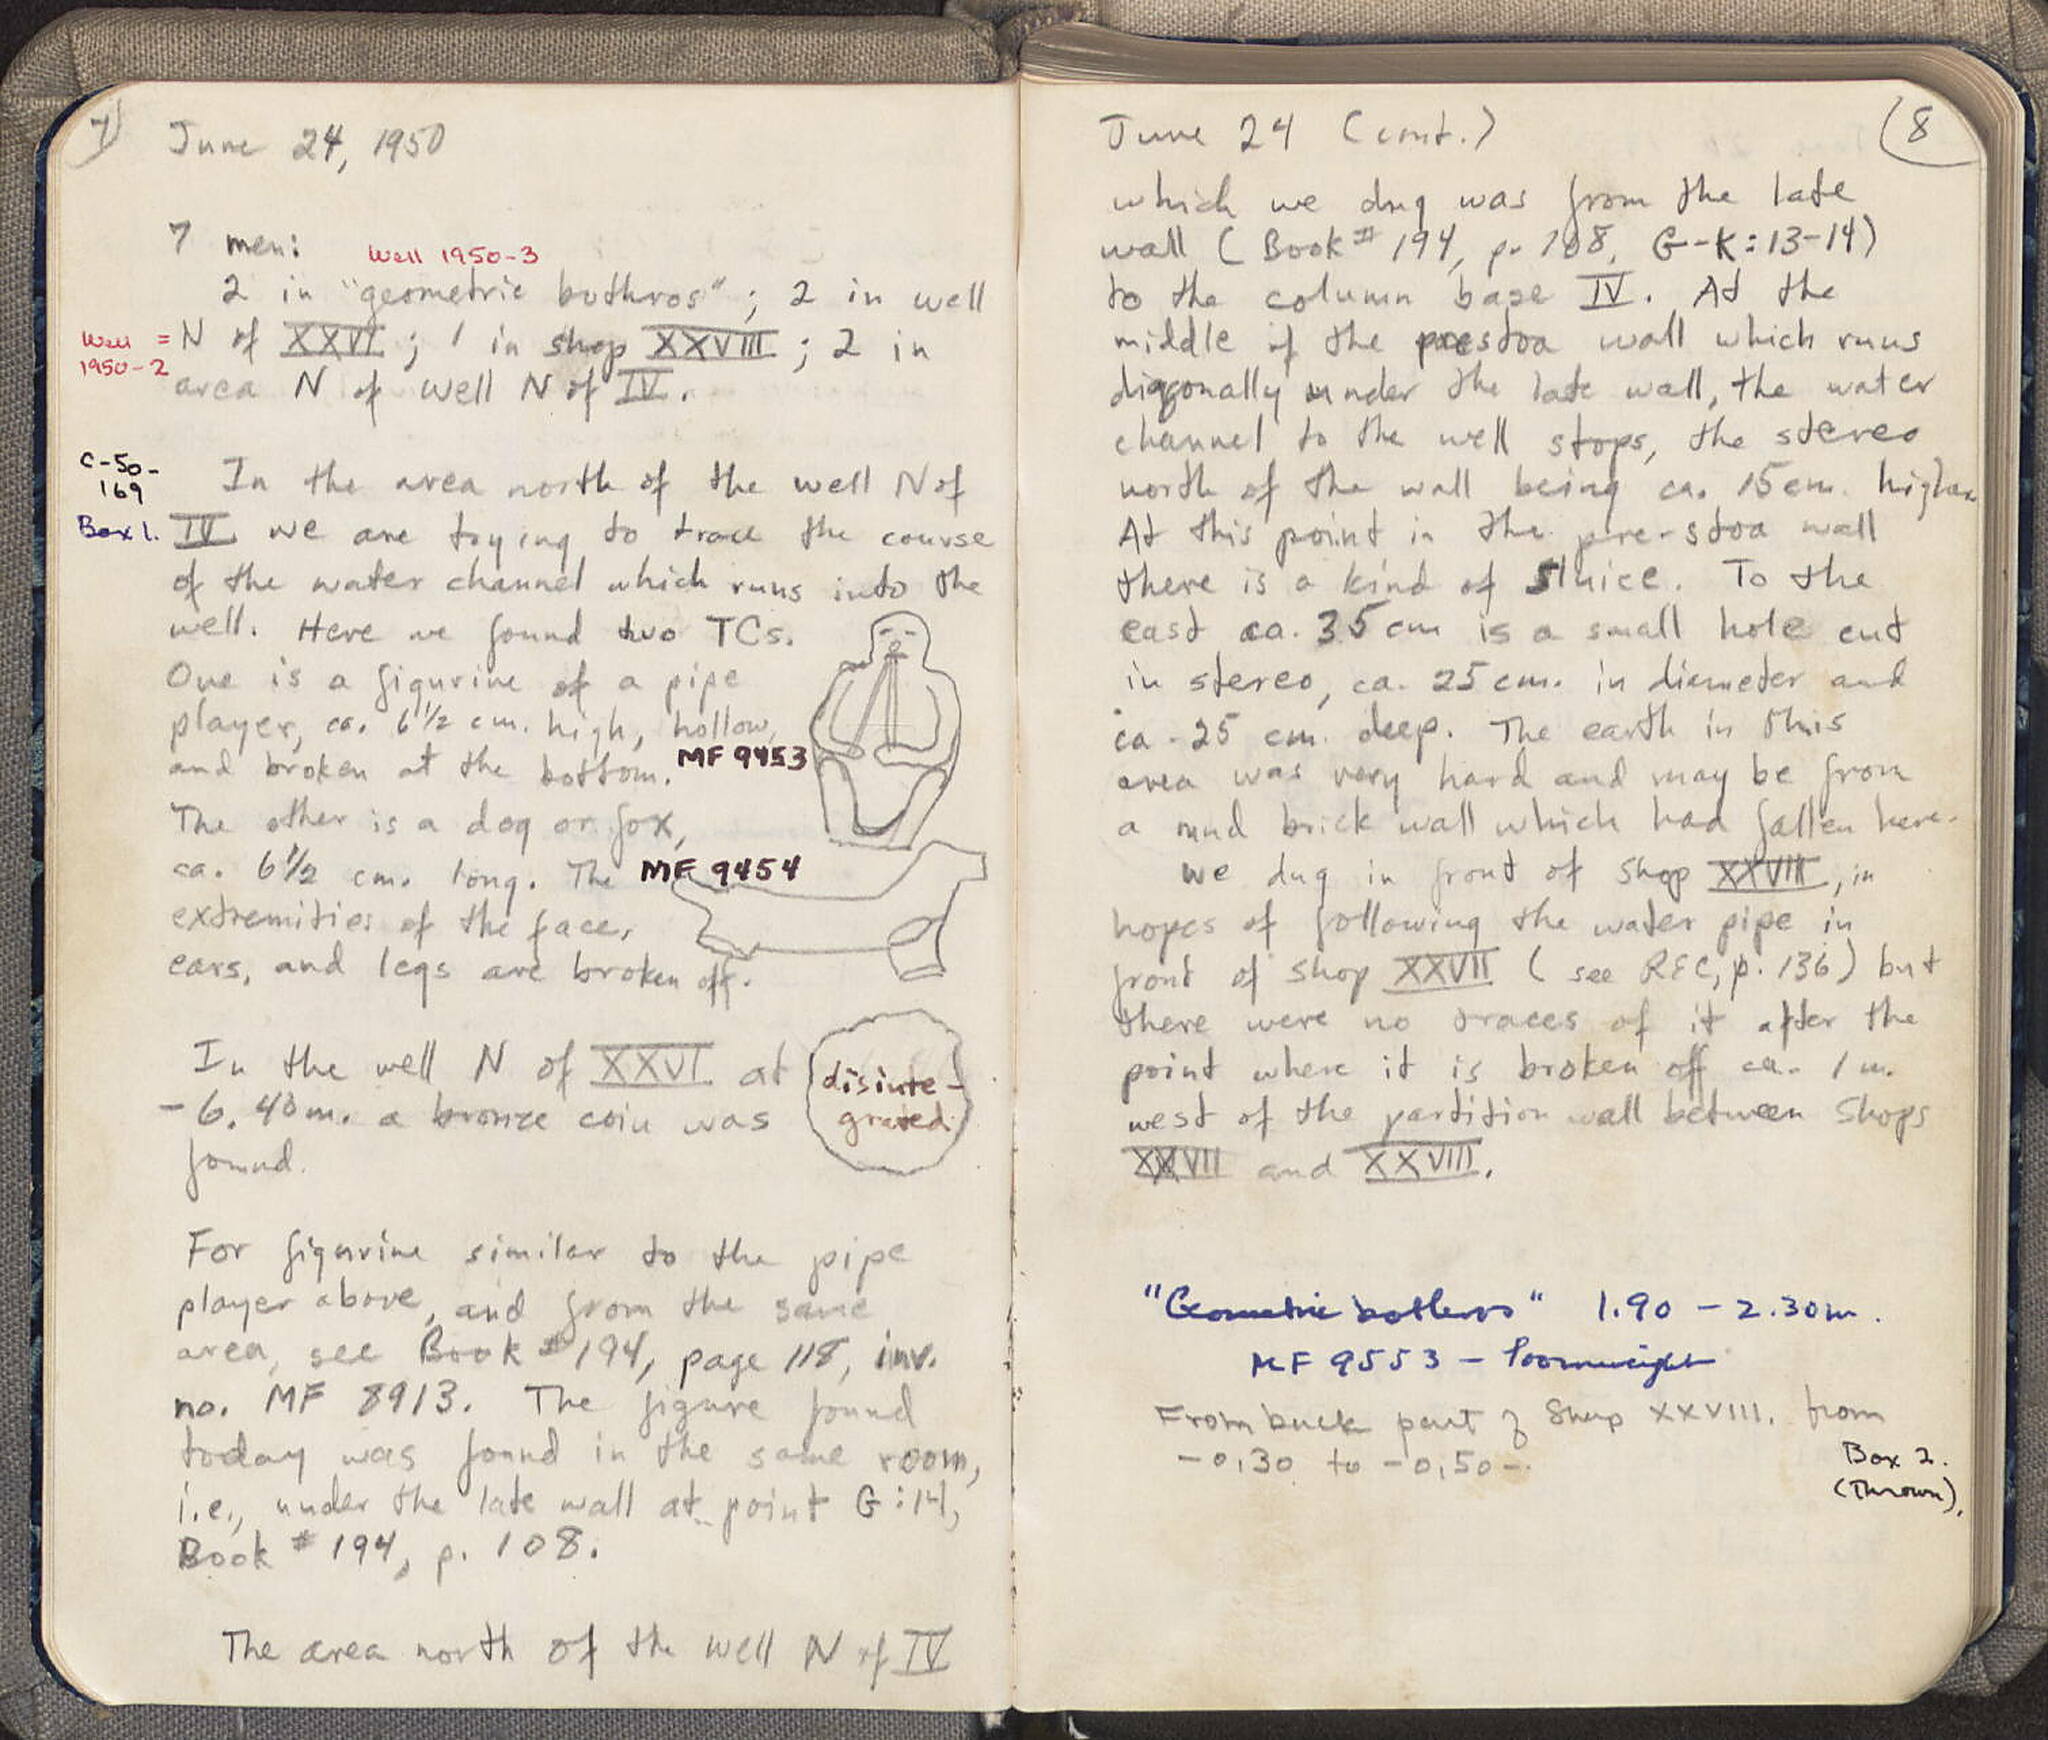 7
June 24, 1950
7 men:
Well 1950-3
2 in "geometric bothros"; 2 in well
Well = 1950-2
N of XXVI; 1 in shop XXVIII; 2 in
area N of well N of IV.
C-50-
169
Box 1.
In the area north of the well N of
IV we are trying to trace the course
of the water channel which runs into the
well. Here we found two TCs.
One is a figurine of a pipe
player, ca. 6 1/2 cm. high, hollow,
and broken at the bottom. MF 9453
The other is a dog or fox,
ca. 6 1/2 cm. long. The MF 9454
extremities of the face,
ears, and legs are broken off.
In the well N of XXVI at
-6.40 m. a bronze coin was
found.
disinte-
grated
For figurine similar to the pipe
player above, and from the same
area, see Book #194, page 118, inv.
no. MF 8913. The figure found
today was found in the same room,
i.e., under the late wall at point G:14,
Book #194, p. 108.
The area north of the well N of IV
8
June 24 (cont.)
which we dug was from the late
wall (Book #194, p. 108, G-K:13-14)
to the column base IV. At the
middle of the prestoa wall which runs
diagonally under the late wall, the water
channel to the well stops, the stereo
north of the wall being ca. 15 cm. higher.
At this point in the pre-stoa wall
there is a kind of sluice. To the
east ca. 35 cm is a small hole cut
in stereo, ca. 25 cm. in diameter and
ca. 25 cm. deep. The earth in this
area was very hard and may be from
a mud brick wall which had fallen here.
We dug in front of shop XXVIII, in
hopes of following the water pipe in
front of shop XXVII (see REC, p. 136) but
there were no traces of it after the
point where it is broken off ca. 1 m.
west of the partition wall between Shops
XXVII and XXVIII.
"Geometric bothros" 1.90 - 2.30 m.
MF 9553 - loomweight
From back part of Shop XXVIII. from
-0,30 to -0,50-.
Box 2.
(Thrown).